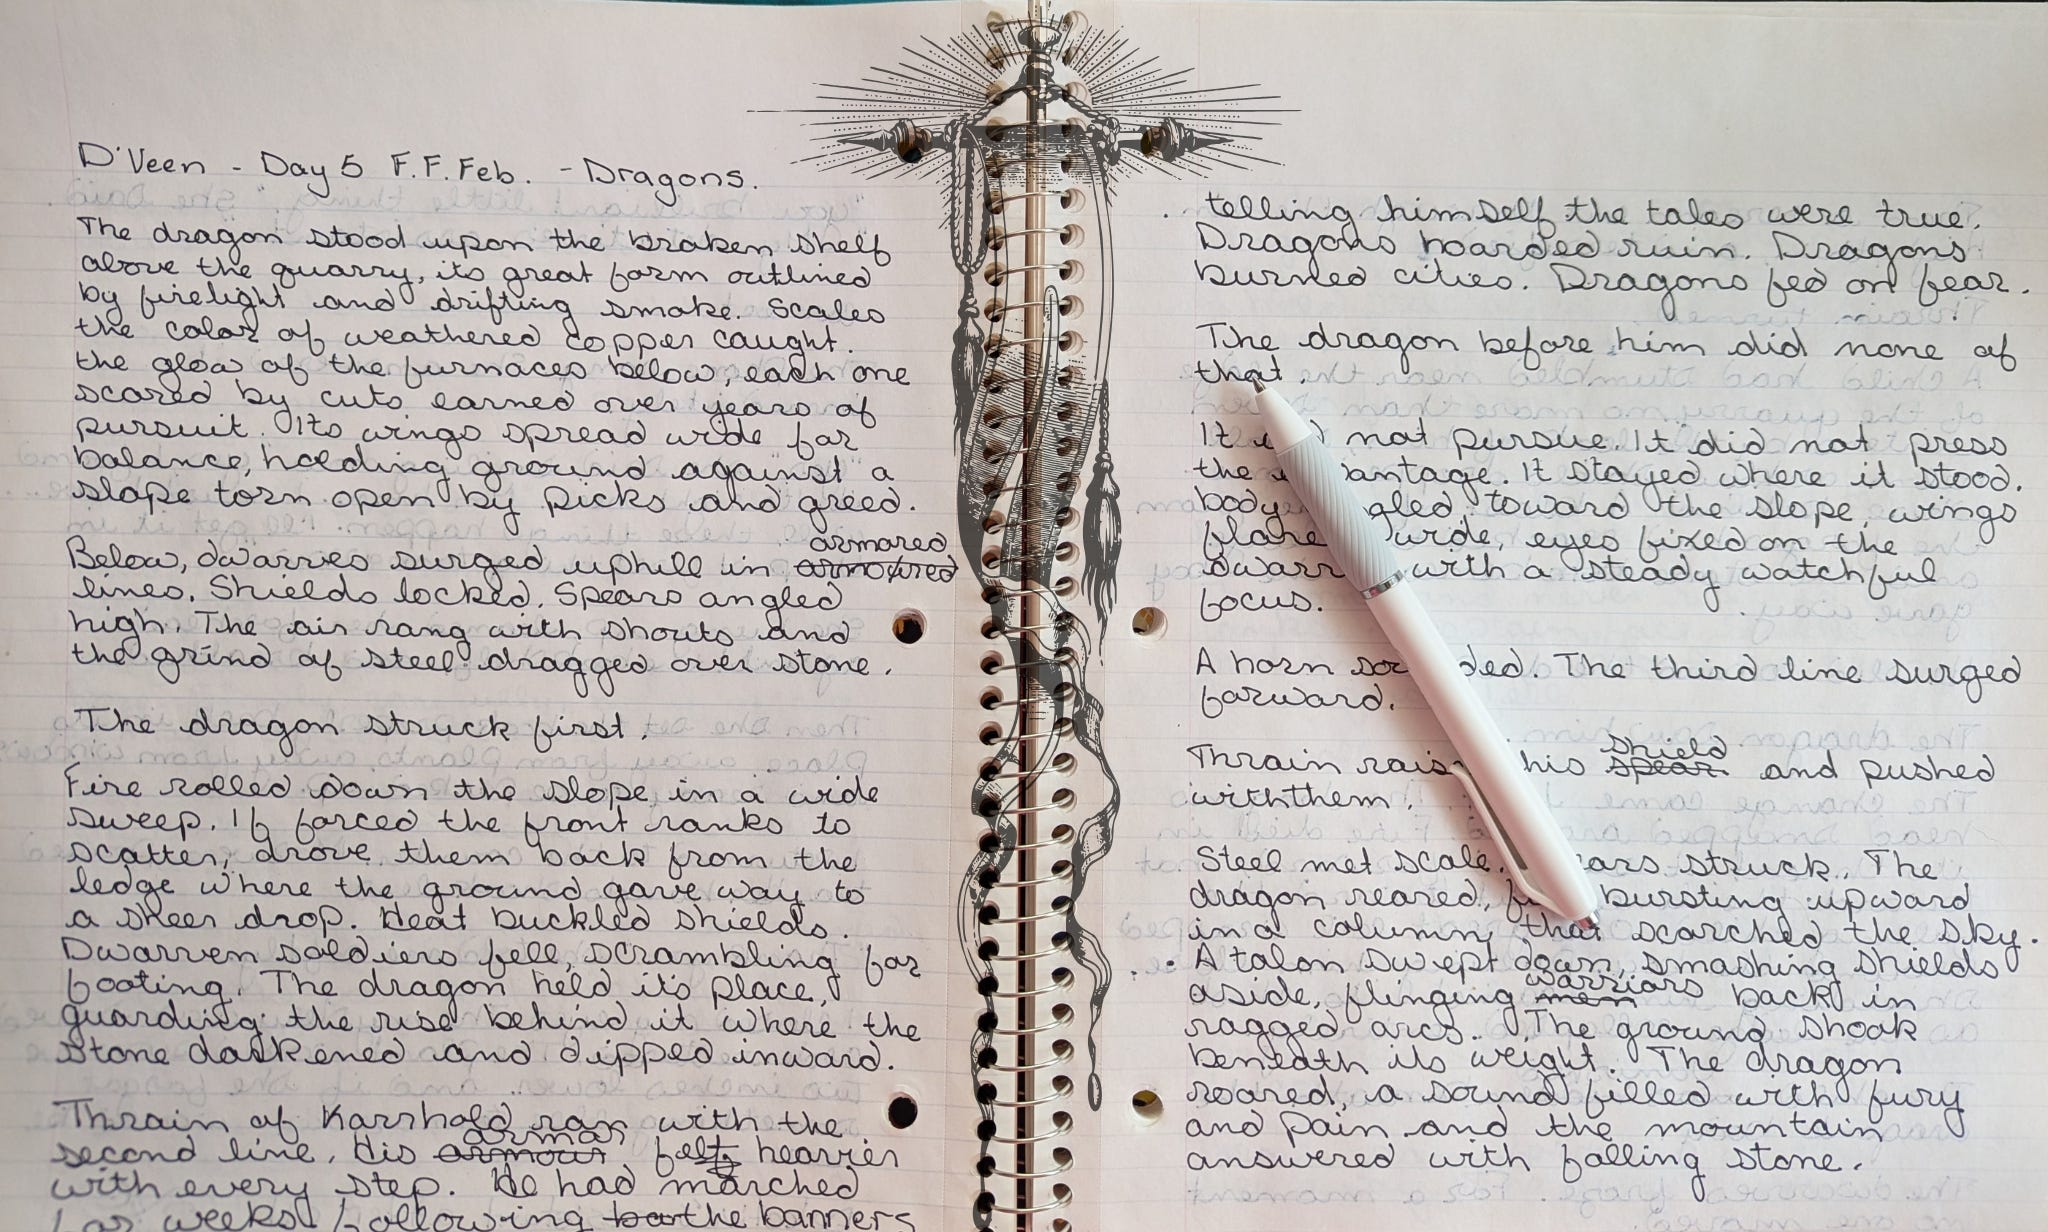 D'Veen - Day 5 F.F. Feb. - Dragons.
The dragon stood upon the broken shelf
above the quarry, its great form outlined
by firelight and drifting smoke. Scales
the color of weathered copper caught.
the glow of the furnaces below, each one
scared by cuts earned over years of
pursuit. Its wings spread wide for
balance, holding ground against a
slope torn open by picks and greed.
armored
Below, dwarves surged uphill in armoured
lines. Shields locked. Spears angled
high. The air rang with shouts and
the grind of steel dragged over stone.
The dragon struck first.
Fire rolled down the slope in a wide
sweep. It forced the front ranks to
scatter, drove them back from the
ledge where the ground gave way to
a sheer drop. Heat buckled shields.
Dwarven soldiers fell, scrambling for
footing. The dragon held its place,
guarding the rise behind it where the
stone darkened and dipped inward.
Thrain of Karrhold ran with the
armor
second line. His armour felt heavier
with every step. He had marched
for weeks following the banners
telling himself the tales were true.
Dragons hoarded ruin. Dragons
burned cities. Dragons fed on fear.
The dragon before him did none of
that.
It not pursue. It did not press
the antage. It stayed where it stood.
body gled toward the slope, wings
flare wide, eyes fixed on the
dwar with a steady watchful
focus.
A horn so ded. The third line surged
forward.
shield
Thrain rais his spear and pushed
with them.
Steel met scale. ears struck. The
dragon reared, bursting upward
in a column, that scorched the sky.
A talon swept down, smashing shields
warriors
aside, flinging men back in
ragged arcs. The ground shook
beneath its weight. The dragon
roared, a sound filled with fury
and pain and the mountain
answered with falling stone.